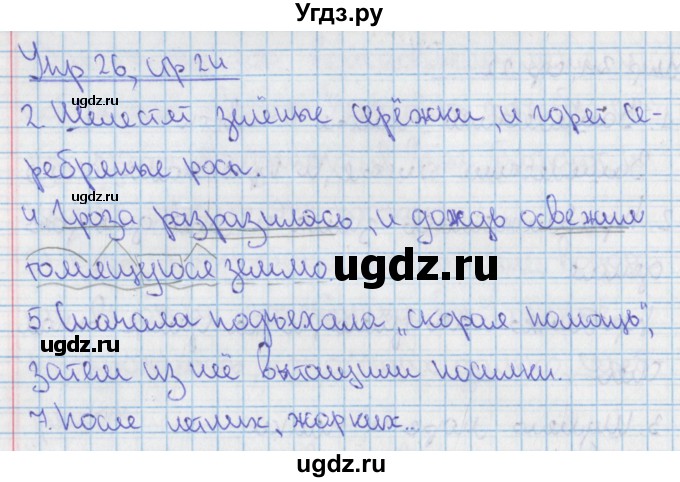 Угдз.ру
Упр 26, стр 24
2. Шелестят зелёные серёжки, и горят се-
ребряные росы.
4. Гроза разразилась, и дождь освежил
томящуюся землю.
5. Сначала подъехала „скорая помощь",
затем из неё вытащили носилки.
7. После жарких..
ugdz.ru
ugdz.ru
ugdz.ru
ugdz.ru
ugdz.ru
ugdz.ru